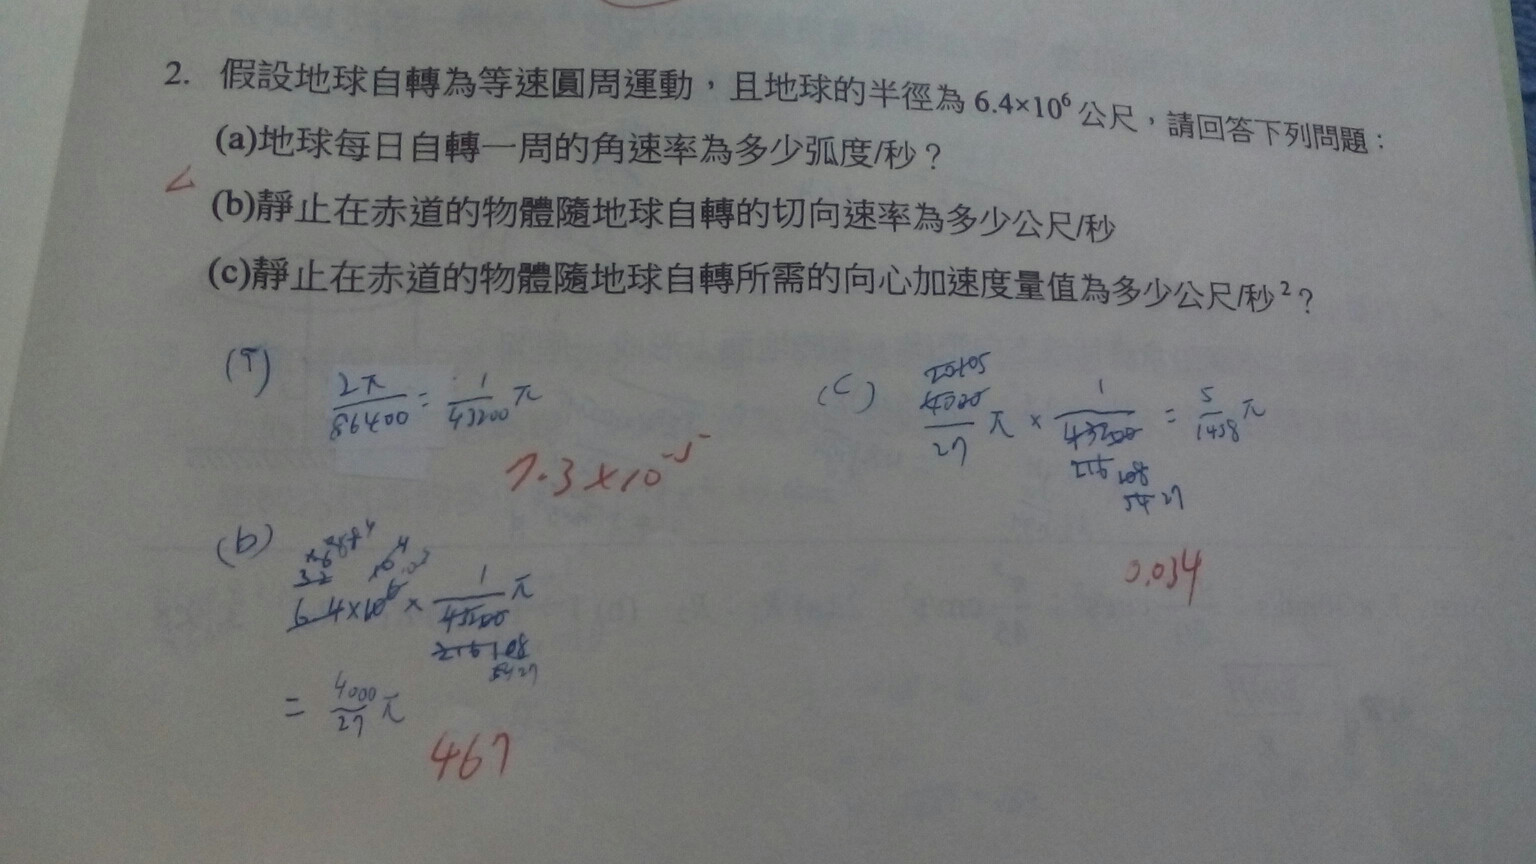 2. 假設地球自轉為等速圓周運動，且地球的半徑為 6.4×10⁶ 公尺，請回答下列問題：
(a)地球每日自轉一周的角速率為多少弧度/秒？
(b)靜止在赤道的物體隨地球自轉的切向速率為多少公尺/秒
(c)靜止在赤道的物體隨地球自轉所需的向心加速度量值為多少公尺/秒²？
2π/86400 = 1/43200 π
7.3×10⁻⁵
(b)
6.4×10⁶ × 1/43200 π
= 4000/27 π
467
(c)
4000/27 π × 1/43200 = 5/1458 π
0.034